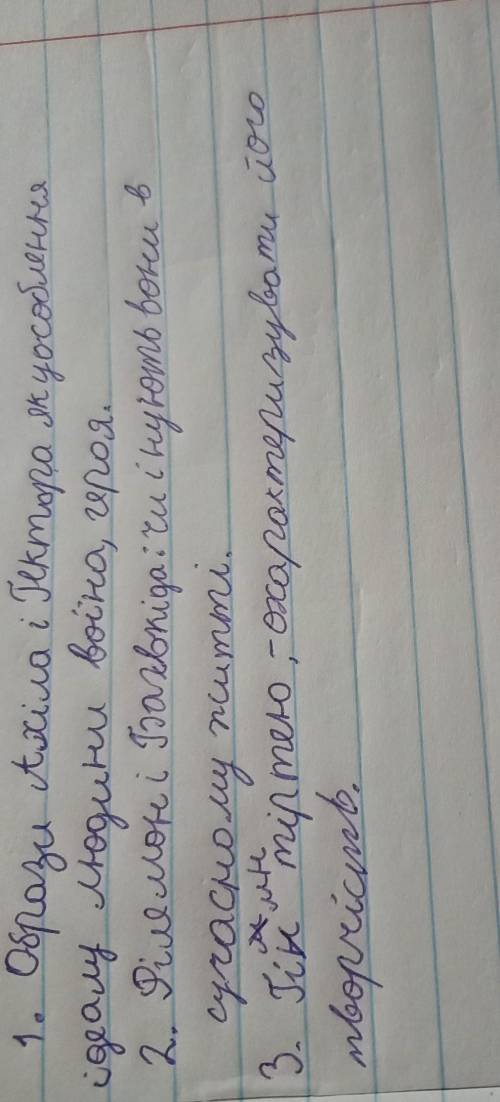 1. Образи Ахіла і Гектора як уособлення
ідеалу людини воїна, героя.
2. Філемон і Бавкіда: чи існують вони в
сучасному житті.
3. Гімн Тіртею, - охарактеризувати його
творчість.